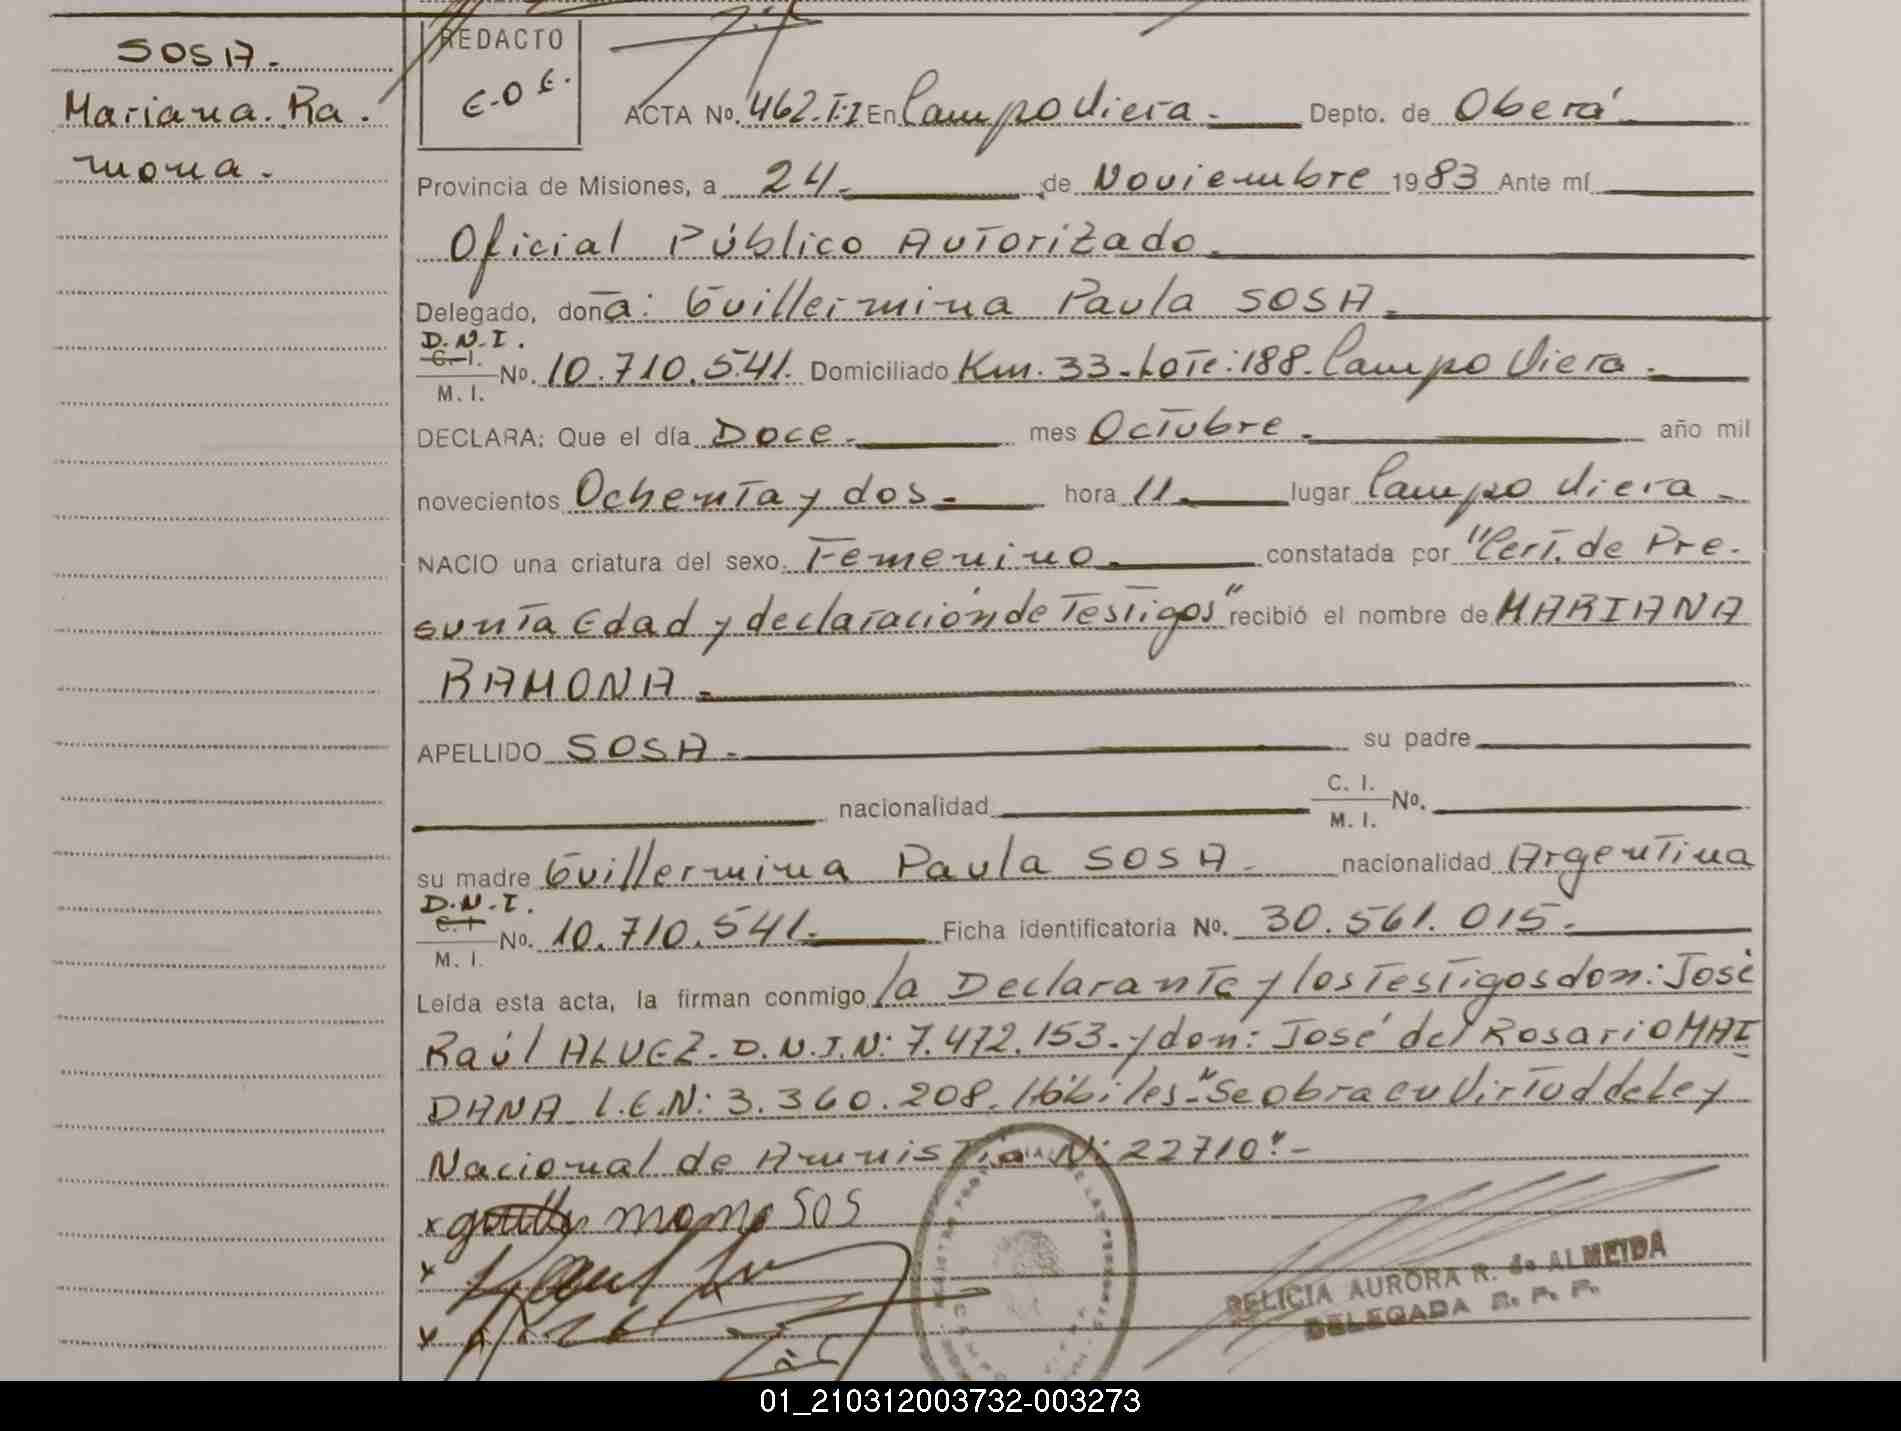 SOSA.
Mariana. Ra.
mona.
REDACTO
E.O.E.
ACTA Nº. 462. T.I En Campo Viera. Depto. de Oberá
Provincia de Misiones, a 24. de Noviembre 1983 Ante mí
Oficial Público Autorizado.
Delegado, doña: Guillermina Paula SOSA.
D.N.I.
C. I.
M. I. Nº. 10.710.541. Domiciliado Km. 33. Lote: 188. Campo Viera.
DECLARA: Que el día Doce. mes Octubre. año mil
novecientos Ochenta y dos. hora 11. lugar Campo Viera.
NACIO una criatura del sexo Femenino constatada por "Cert. de Pre.
sunta Edad y declaración de Testigos" recibió el nombre de MARIANA
RAMONA.
APELLIDO SOSA. su padre
nacionalidad C. I.
M. I. Nº.
su madre Guillermina Paula SOSA. nacionalidad Argentina
D.N.I.
C. I.
M. I. Nº. 10.710.541. Ficha identificatoria Nº. 30.561.015.
Leída esta acta, la firman conmigo la Declarante y los Testigos don: José
Raúl ALVEZ. D.N.I.N: 7.472.153. y don: José del Rosario MAI
DANA L.E.N: 3.360.208. Hábiles. "Se obra en Virtud de Ley
Nacional de Amnistía N: 22710".-
SOS
DELICIA AURORA R. de ALMEIDA
DELEGADA R. P. P.
01_210312003732-003273